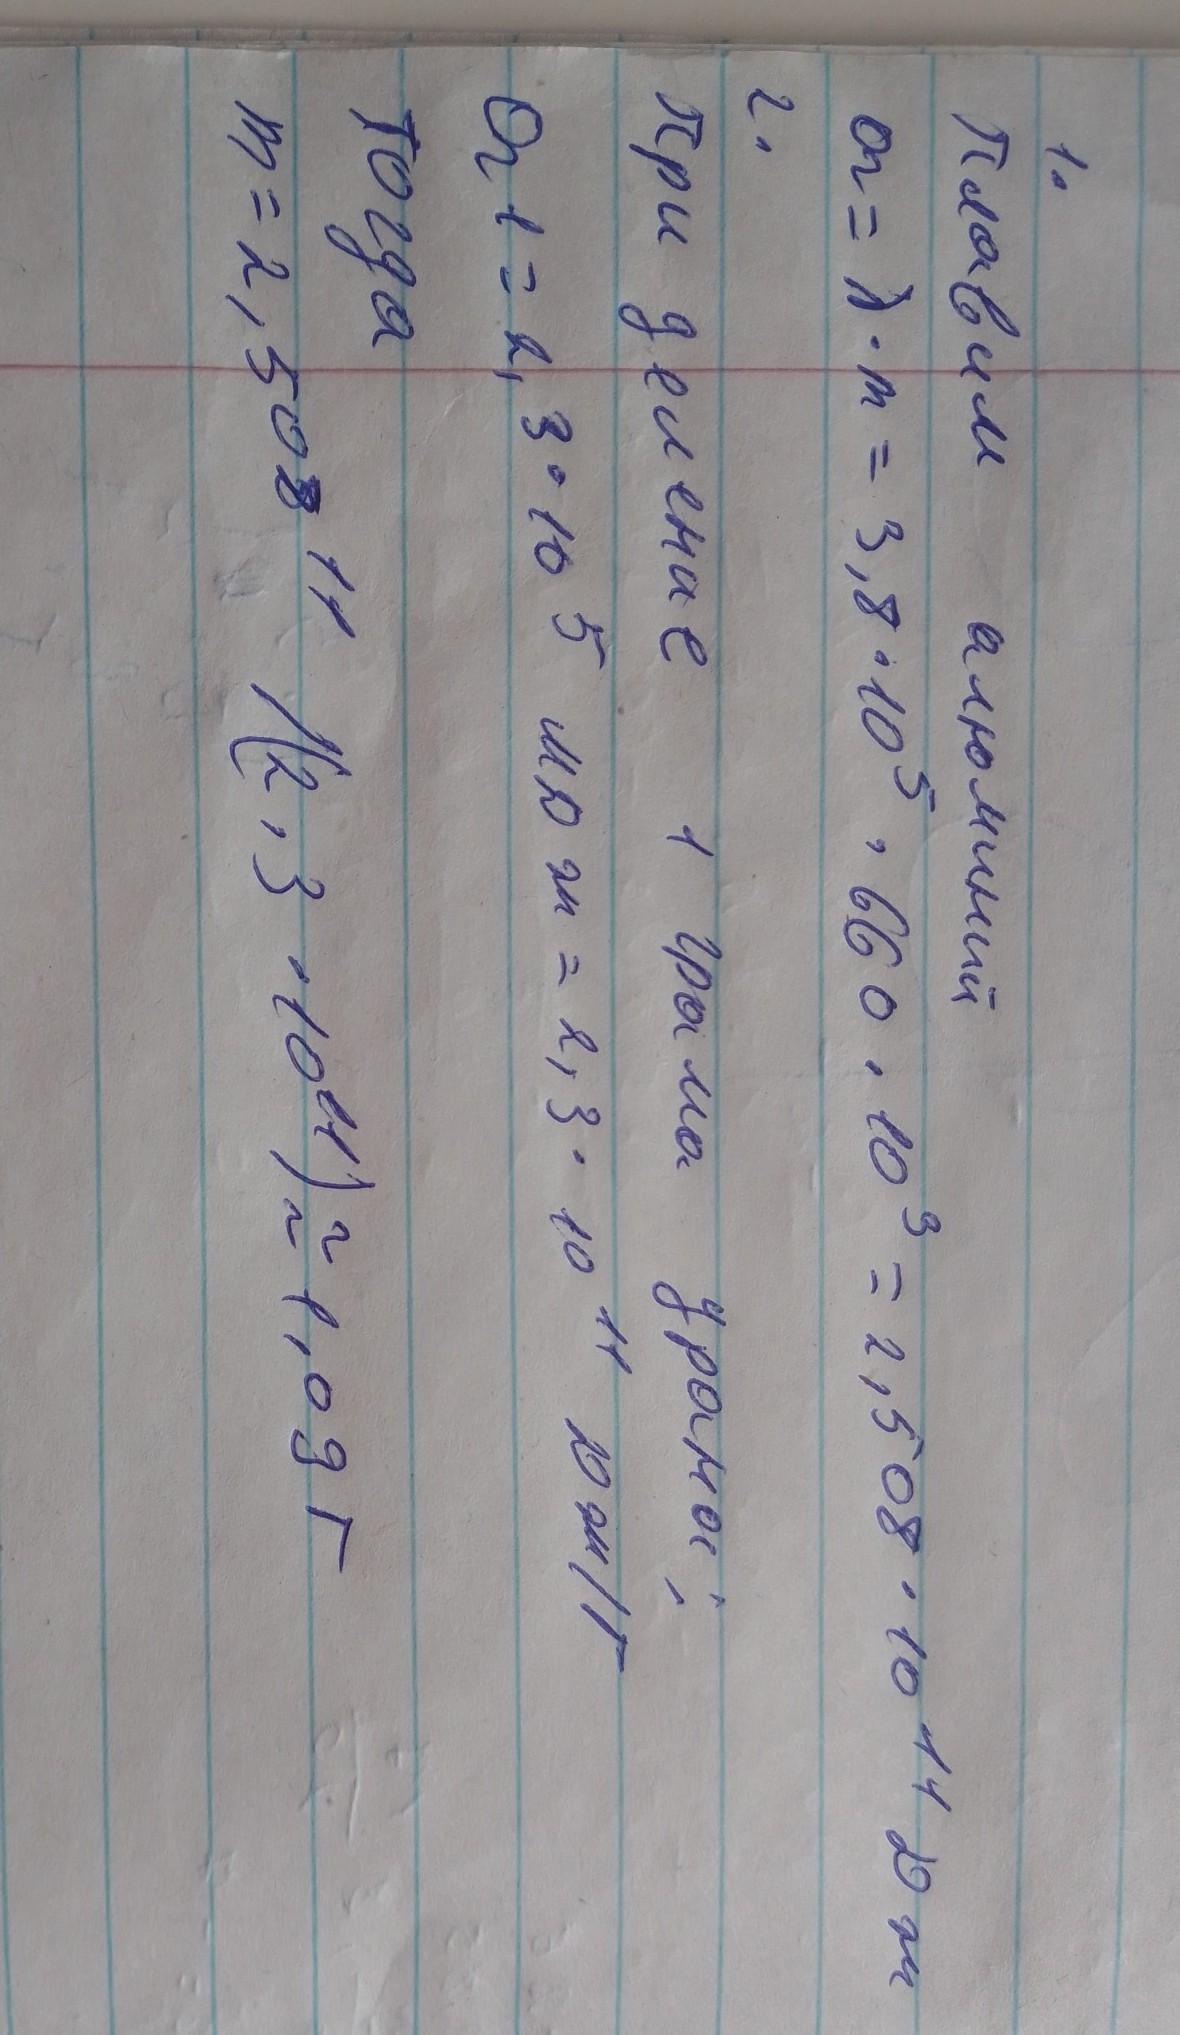 1.
Плавим алюминий
Q = λ · m = 3,8 · 10⁵ · 660 · 10³ = 2,508 · 10¹¹ Дж
2.
При деление 1 грама урана;
Q1 = 2,3 · 10⁵ МДж = 2,3 · 10¹¹ Дж/г
Тогда
m = 2,508 11 /(2,3 · 10¹¹) ≈ 1,09 г